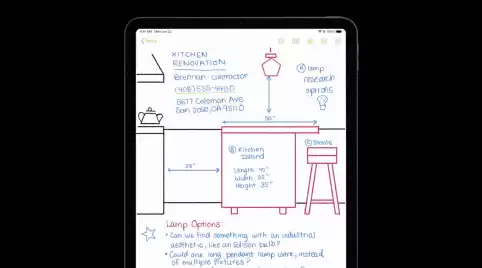 KITCHEN
RENOVATION
Brennan contractor
(408) 555-4450
5677 Coloman Ave
San Jose, CA 95110
Ⓐ lamp
research
options
50"
Ⓑ Kitchen
Island
Length
Width
Height 35"
Ⓒ Stools
Lamp Options:
• Can we find something with an industrial
aesthetic, like an edison bulb?
• Could one long pendant lamp work, instead
of multiple fixtures?